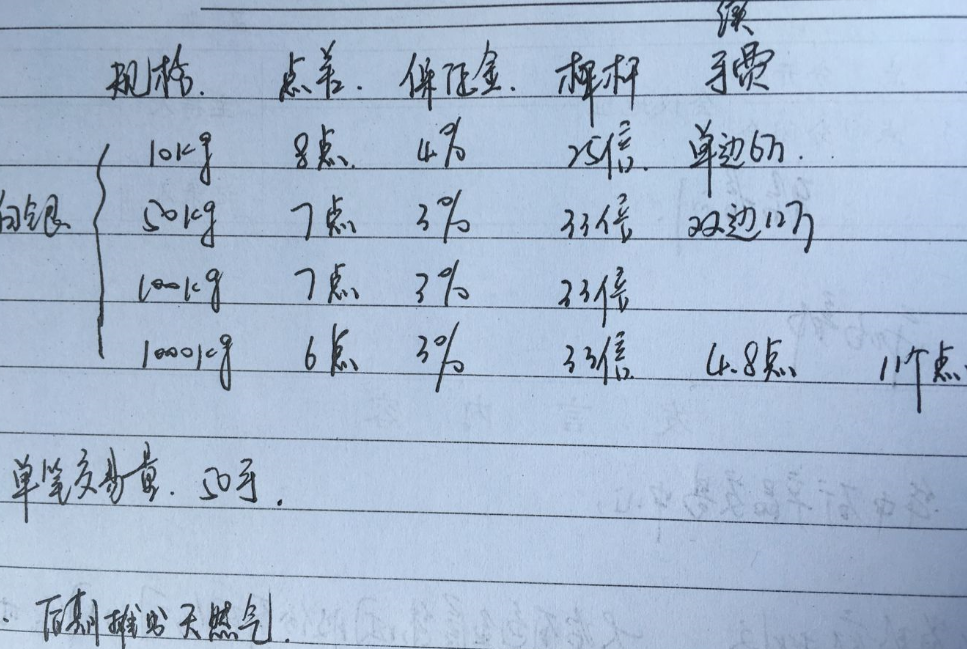 规格. 点差. 保证金. 杠杆 手续费
10kg 8点 4% 25倍. 单边6万.
白银 50kg 7点 3% 33倍 双边12万
100kg 7点 3% 33倍
1000kg 6点 3% 33倍 4.8点 11个点.
单笔交易量. 50手.
后期推出天然气.